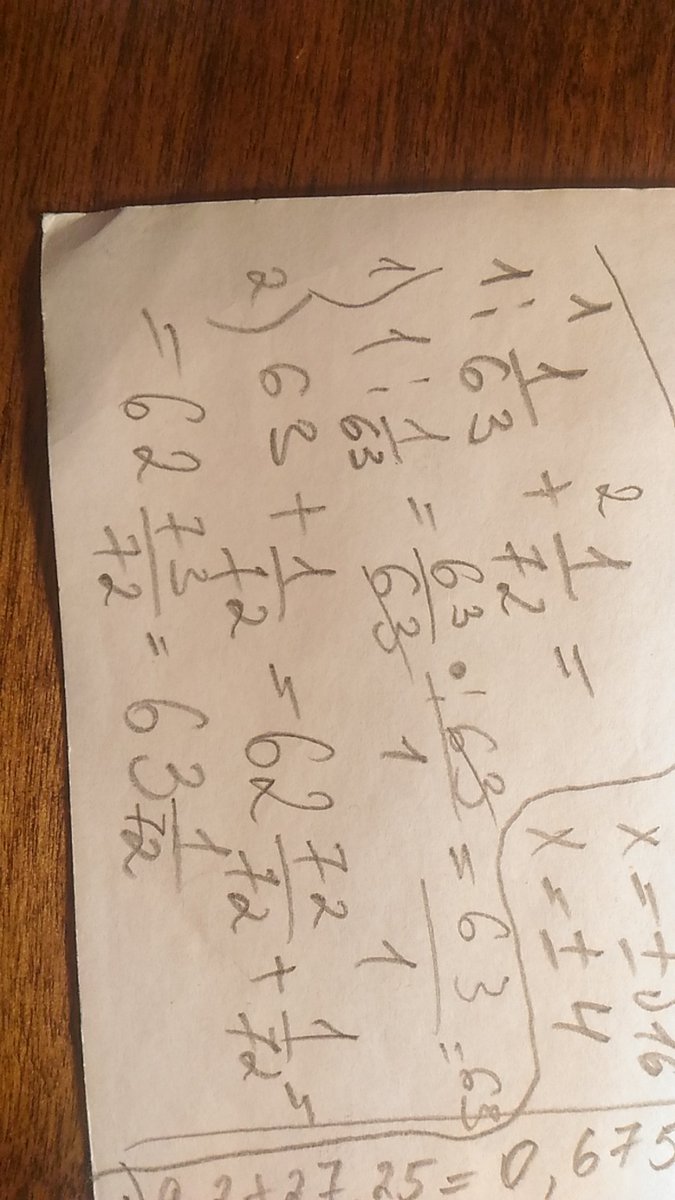 1 2
1 : 1/63 + 1/72 =
1) 1 : 1/63 = 63/63 · 63/1 = 63/1 = 63
2) 63 + 1/72 = 62 72/72 + 1/72 =
= 62 73/72 = 63 1/72
x = ±√16
x = ± 4
27,25 = 0,675